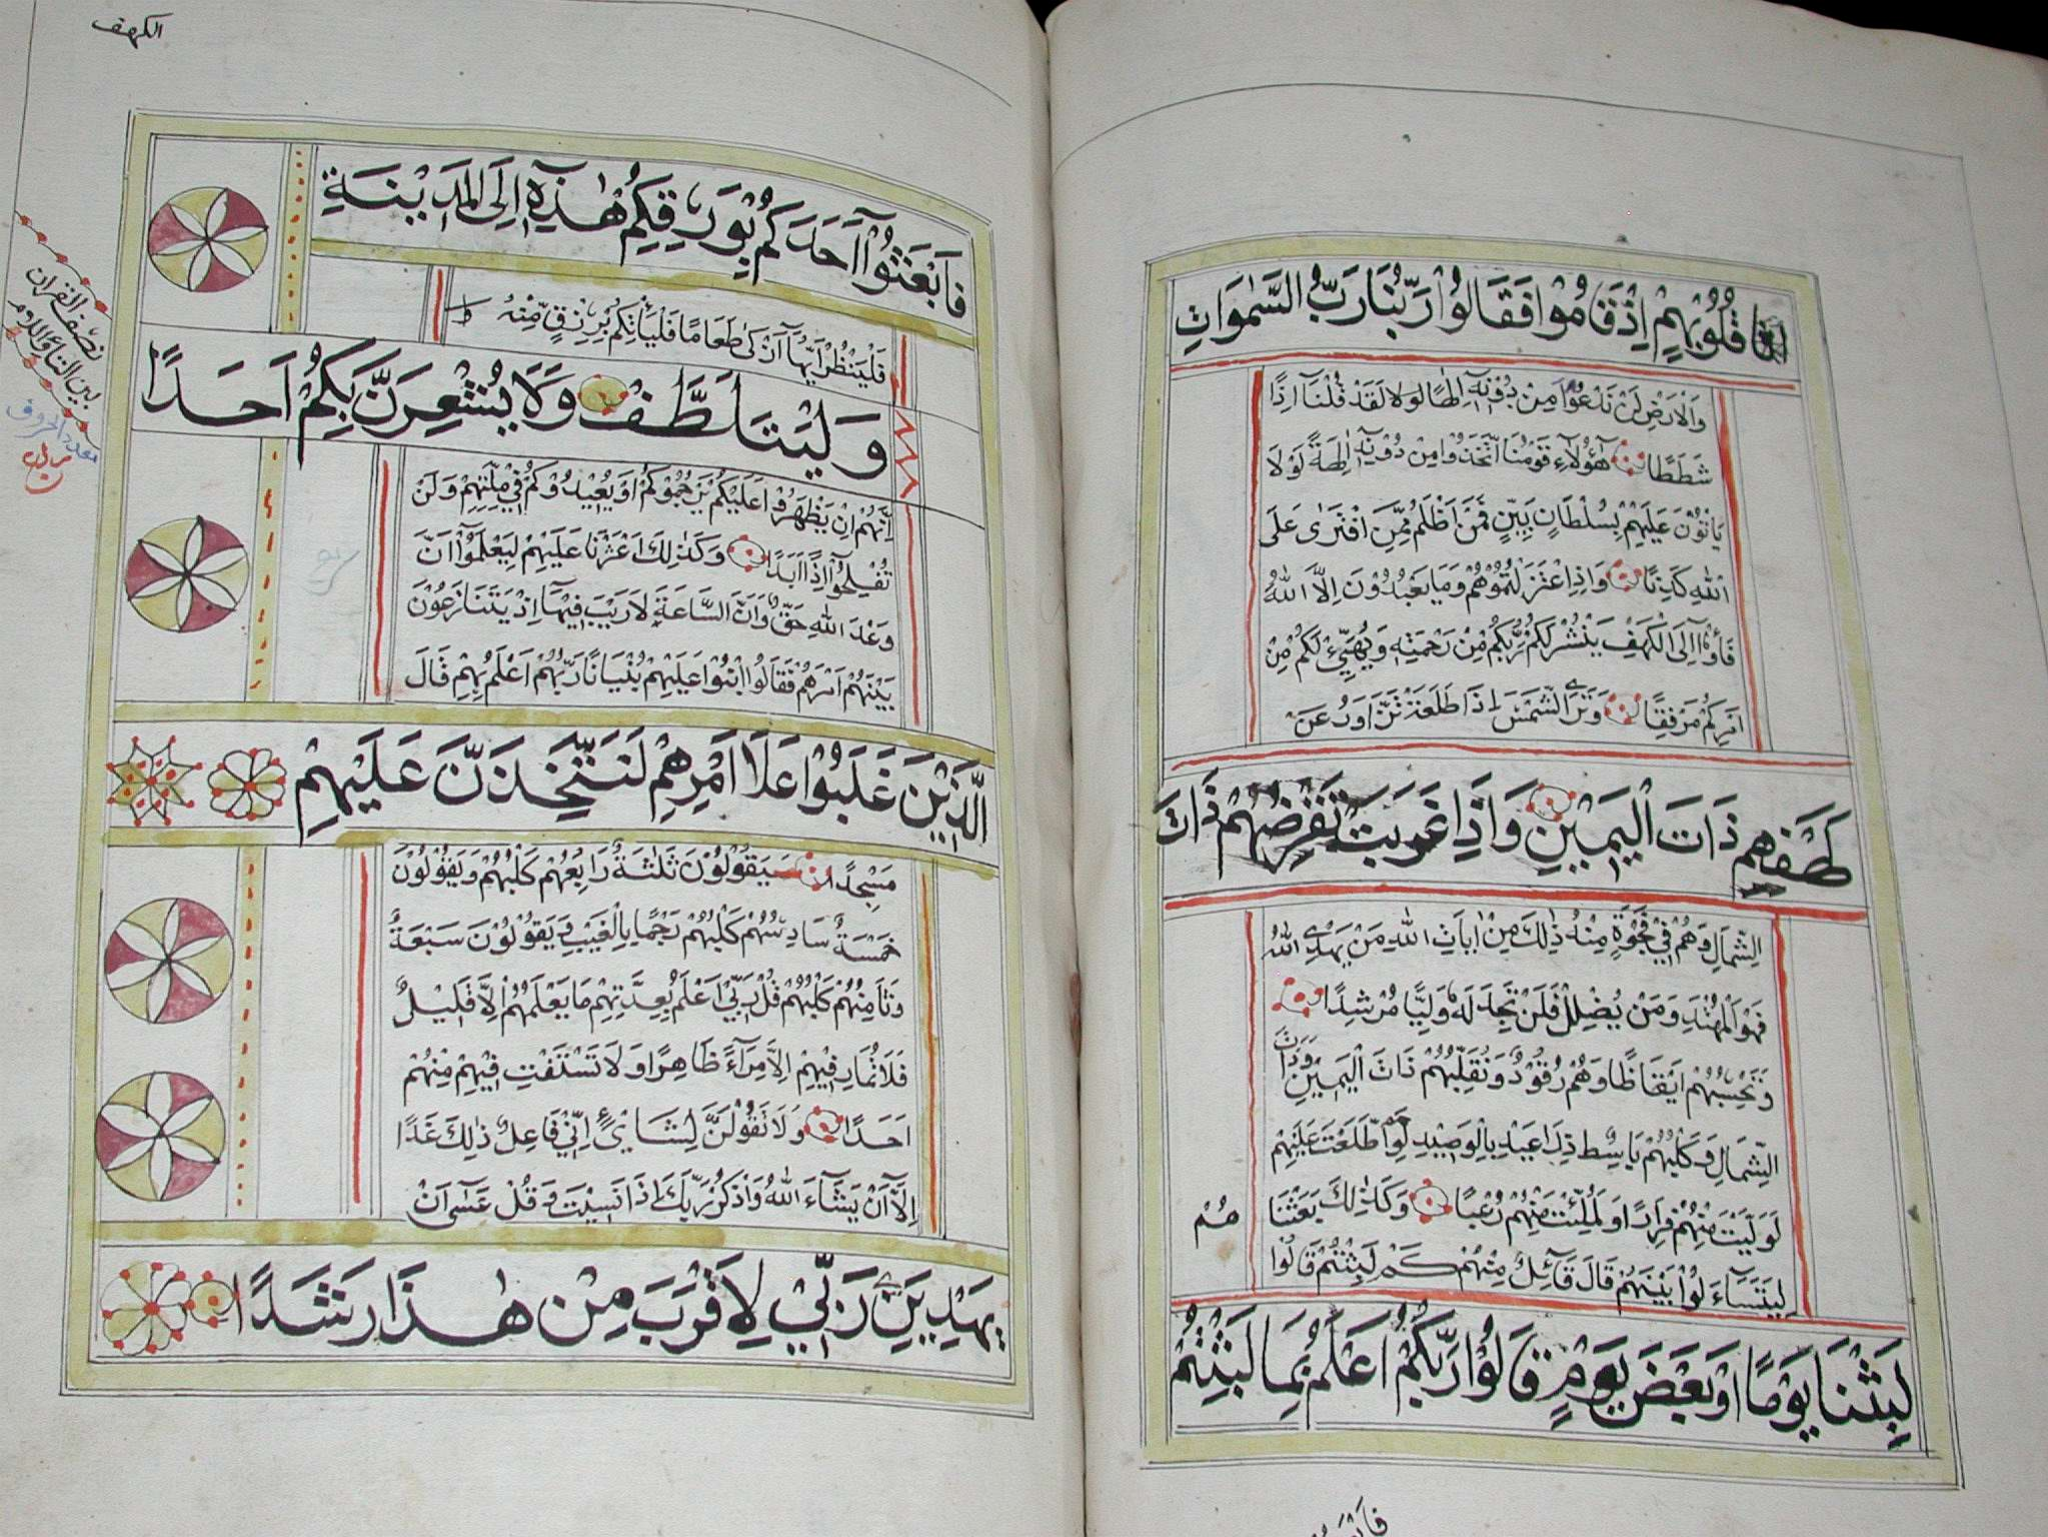 قُلُوبِهِمْ اِذْقَامُوا فَقَالُوا رَبُّنَا رَبُّ السَّمٰوَاتِ
وَالْاَرْضِ لَنْ نَدْعُوَا مِنْ دُوْنِهٓ اِلٰهًا لَّوْ لَا لَقَدْ قُلْنَآ اِذًا
شَطَطًا هٰٓؤُلَآءِ قَوْمُنَا اتَّخَذُوْا مِنْ دُوْنِهٓ اٰلِهَةً لَوْ لَا
يَاْتُوْنَ عَلَيْهِمْ بِسُلْطَانٍ بَيِّنٍ فَمَنْ اَظْلَمُ مِمَّنِ افْتَرٰى عَلَى
اللهِ كَذِبًا وَاِذِ اعْتَزَلْتُمُوْهُمْ وَمَا يَعْبُدُوْنَ اِلَّا اللهَ
فَاْوٗٓا اِلَى الْكَهْفِ يَنْشُرْ لَكُمْ رَبُّكُمْ مِنْ رَحْمَتِهٖ وَيُهَيِّئْ لَكُمْ مِنْ
اَمْرِكُمْ مِرْفَقًا وَتَرَى الشَّمْسَ اِذَا طَلَعَتْ تَّزَاوَرُ عَنْ
كَهْفِهِمْ ذَاتَ الْيَمِيْنِ وَاِذَا غَرَبَتْ تَقْرِضُهُمْ ذَاتَ
الشِّمَالِ وَهُمْ فِيْ فَجْوَةٍ مِنْهُ ذٰلِكَ مِنْ اٰيَاتِ اللهِ مَنْ يَهْدِي اللهُ
فَهُوَ الْمُهْتَدِ وَمَنْ يُضْلِلْ فَلَنْ تَجِدَ لَهٗ وَلِيًّا مُرْشِدًا
وَتَحْسَبُهُمْ اَيْقَاظًا وَهُمْ رُقُوْدٌ وَنُقَلِّبُهُمْ ذَاتَ الْيَمِيْنِ وَذَاتَ
الشِّمَالِ وَكَلْبُهُمْ بَاسِطٌ ذِرَاعَيْهِ بِالْوَصِيْدِ لَوِ اطَّلَعْتَ عَلَيْهِمْ
لَوَلَّيْتَ مِنْهُمْ فِرَارًا وَلَمُلِئْتَ مِنْهُمْ رُعْبًا وَكَذٰلِكَ بَعَثْنَا
هُمْ
لِيَتَسَآءَلُوْا بَيْنَهُمْ قَالَ قَآئِلٌ مِنْهُمْ كَمْ لَبِثْتُمْ قَالُوْا
لَبِثْنَا يَوْمًا اَوْ بَعْضَ يَوْمٍ قَالُوْا رَبُّكُمْ اَعْلَمُ بِمَا لَبِثْتُمْ
الكهف
فَابْعَثُوْٓا اَحَدَكُمْ بِوَرِقِكُمْ هٰذِهٖٓ اِلَى الْمَدِيْنَةِ
فَلْيَنْظُرْ اَيُّهَآ اَزْكٰى طَعَامًا فَلْيَاْتِكُمْ بِرِزْقٍ مِّنْهُ ط
وَلْيَتَلَطَّفْ وَلَا يُشْعِرَنَّ بِكُمْ اَحَدًا
نصف القران
بين التاء واللام
بعدد الحروف
اِنَّهُمْ اِنْ يَظْهَرُوْا عَلَيْكُمْ يَرْجُمُوْكُمْ اَوْ يُعِيْدُوْكُمْ فِيْ مِلَّتِهِمْ وَلَنْ
تُفْلِحُوْٓا اِذًا اَبَدًا وَكَذٰلِكَ اَعْثَرْنَا عَلَيْهِمْ لِيَعْلَمُوْٓا اَنَّ
وَعْدَ اللهِ حَقٌّ وَاَنَّ السَّاعَةَ لَا رَيْبَ فِيْهَآ اِذْ يَتَنَازَعُوْنَ
بَيْنَهُمْ اَمْرَهُمْ فَقَالُوا ابْنُوْا عَلَيْهِمْ بُنْيَانًا رَبُّهُمْ اَعْلَمُ بِهِمْ قَالَ
الَّذِيْنَ غَلَبُوْا عَلَا اَمْرِهِمْ لَنَتَّخِذَنَّ عَلَيْهِمْ
مَسْجِدًا سَيَقُوْلُوْنَ ثَلٰثَةٌ رَابِعُهُمْ كَلْبُهُمْ وَيَقُوْلُوْنَ
خَمْسَةٌ سَادِسُهُمْ كَلْبُهُمْ رَجْمًا بِالْغَيْبِ وَيَقُوْلُوْنَ سَبْعَةٌ
وَثَامِنُهُمْ كَلْبُهُمْ قُلْ رَبِّيْ اَعْلَمُ بِعِدَّتِهِمْ مَا يَعْلَمُهُمْ اِلَّا قَلِيْلٌ
فَلَا تُمَارِ فِيْهِمْ اِلَّا مِرَآءً ظَاهِرًا وَلَا تَسْتَفْتِ فِيْهِمْ مِنْهُمْ
اَحَدًا وَلَا تَقُوْلَنَّ لِشَايْءٍ اِنِّيْ فَاعِلٌ ذٰلِكَ غَدًا
اِلَّآ اَنْ يَشَآءَ اللهُ وَاذْكُرْ رَبَّكَ اِذَا نَسِيْتَ وَقُلْ عَسٰٓى اَنْ
يَهْدِيَنِ رَبِّيْ لِاَقْرَبَ مِنْ هٰذَا رَشَدًا